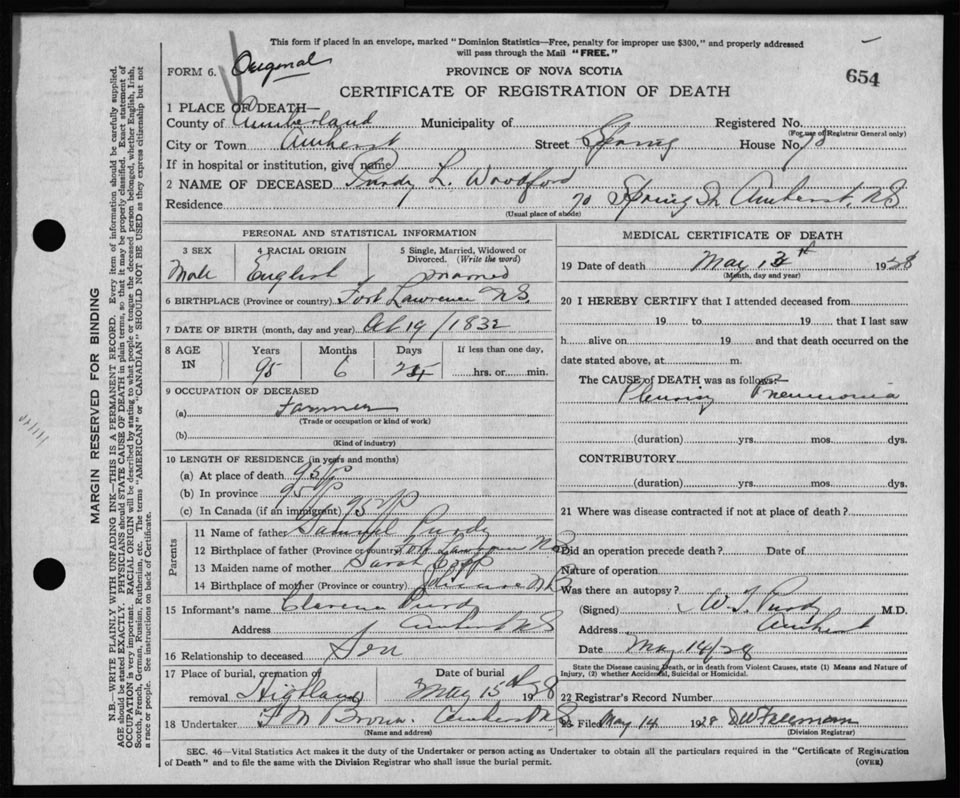 This form if placed in an envelope, marked "Dominion Statistics—Free, penalty for improper use $300," and properly addressed
will pass through the Mail "FREE."
FORM 6. Original
PROVINCE OF NOVA SCOTIA
654
CERTIFICATE OF REGISTRATION OF DEATH
1 PLACE OF DEATH—
County of Cumberland Municipality of Registered No.
(For use of Registrar General only)
City or Town Amherst Street Spring House No. 70
If in hospital or institution, give name
2 NAME OF DECEASED Purdy L. Woodford
Residence 70 Spring St Amherst, NS
(Usual place of abode)
PERSONAL AND STATISTICAL INFORMATION
3 SEX 4 RACIAL ORIGIN 5 Single, Married, Widowed or
Divorced. (Write the word)
Male English Married
6 BIRTHPLACE (Province or country) Fort Lawrence NS.
7 DATE OF BIRTH (month, day and year) Oct 19/1832
8 AGE Years Months Days If less than one day,
IN 95 6 hrs. or min.
9 OCCUPATION OF DECEASED
(a) Farmer
(Trade or occupation or kind of work)
(b)
(Kind of industry)
10 LENGTH OF RESIDENCE (in years and months)
(a) At place of death 95
(b) In province 95
(c) In Canada (if an immigrant) 95
Parents
11 Name of father Samuel Purdy
12 Birthplace of father (Province or country) Fort Lawrence NS
13 Maiden name of mother Sarah
14 Birthplace of mother (Province or country)
15 Informant's name Clarence Purdy
Address Amherst NS
16 Relationship to deceased Son
17 Place of burial, cremation or Date of burial
removal Highland May 15th 1928
18 Undertaker Brown. Amherst NS
(Name and address)
MEDICAL CERTIFICATE OF DEATH
19 Date of death May 1928
(Month, day and year)
20 I HEREBY CERTIFY that I attended deceased from
19 to 19 that I last saw
h alive on 19 and that death occurred on the
date stated above, at m.
The CAUSE of DEATH was as follows:—
Pleurisy Pneumonia
(duration) yrs. mos. dys.
CONTRIBUTORY
(duration) yrs. mos. dys.
21 Where was disease contracted if not at place of death?
Did an operation precede death? Date of
Nature of operation
Was there an autopsy?
(Signed) Purdy M.D.
Address Amherst
Date May 14/28
State the Disease causing Death, or in death from Violent Causes, state (1) Means and Nature of
Injury, (2) whether Accidental, Suicidal or Homicidal.
22 Registrar's Record Number
23 Filed May 14 1928 Freeman
(Division Registrar)
SEC. 46—Vital Statistics Act makes it the duty of the Undertaker or person acting as Undertaker to obtain all the particulars required in the "Certificate of Registration
of Death" and to file the same with the Division Registrar who shall issue the burial permit. (OVER)
MARGIN RESERVED FOR BINDING
N.B.—WRITE PLAINLY WITH UNFADING INK—THIS IS A PERMANENT RECORD. Every item of information should be carefully supplied.
AGE should be stated EXACTLY. PHYSICIANS should STATE CAUSE OF DEATH in plain terms, so that it may be properly classified. Exact statement of
OCCUPATION is very important. RACIAL ORIGIN will be described by stating to what people or tongue the deceased person belonged, whether English, Irish,
Scotch, French, German, Russian, Ruthenian, etc. The terms "AMERICAN" or "CANADIAN" SHOULD NOT BE USED as they express citizenship but not
a race or people. See instructions on back of Certificate.